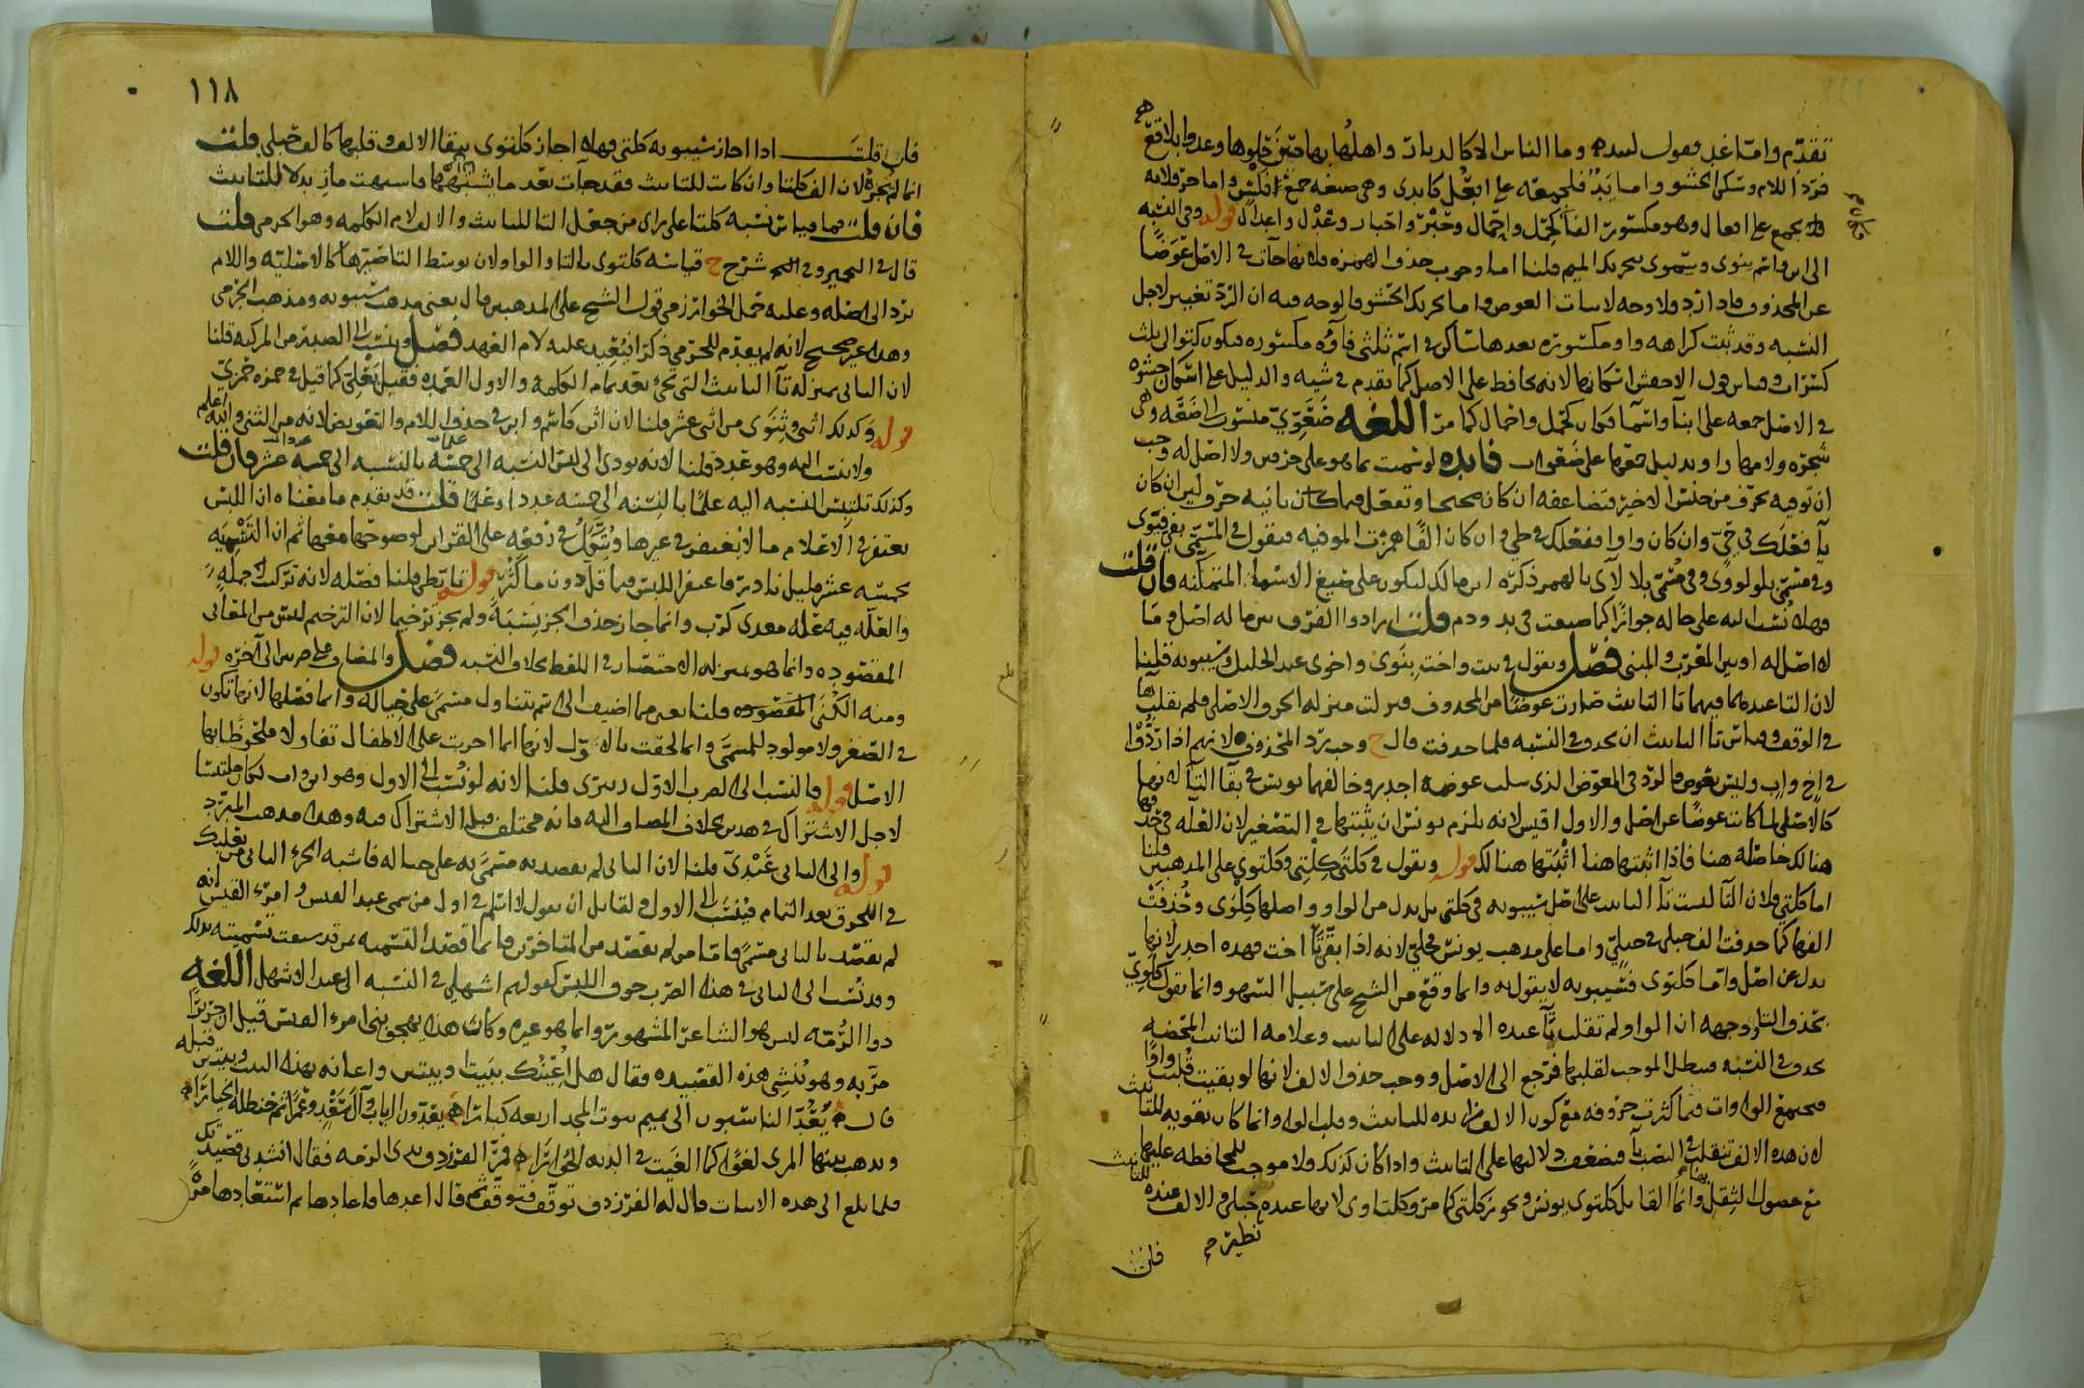 تقدم واما غد فقول لبيد وما الناس الا كالديار واهلها بها يوم حلوها وغدوا بلاقع
فرد اللام وسكن الحشو واما يد فلجمعه على افعل كايدى وهى صيغه جمع فعل واما حر فلانه
يجمع على افعال وهو مكسور الفا كحمل واحمال وحبر واحبار وعدل واعدال قوله وفى النسبه
الى ابن واسم بنوى وسموى بتحريك الميم قلنا اما وجوب حذف الهمزه فلانها جآت فى الاصل عوضا
عن المحذوف فاذا رد فلا وجه لاثبات العوض واما تحريك الحشو فالوجه فيه ان الرد تغيير لاجل
النسبه وقد ثبت كراهه واو مكسوره بعدها
كسرات وقياس قول الاخفش اسكانها لانه يحافط على الاصل كما تقدم فى شيه والدليل على اسكان حشوه
فى الاصل جمعه على ابنآ واسمآ كحمل واحمال كما مر اللغه ضعوى منسوب الى ضعه وهى
شجره ولامها واو بدليل جمعها على ضعوات فايده لو سميت بما هو على حرفين ولا اصل له وجب
ان توفيه بحرف من جنس الاخير فتضاعفه ان كان صحيحا وتفعل فيما كان ثانيه حرف لين ان كان
يآ فعلك فى حى وان كان واوا ففعلك فى طى وان كان الفا همزت الموفيه فتقول فى المسمى بفى فيوى
وفى مسمى بلو لووى وفى مسمى بلا لآى بالهمز ذكره ابن مالك ليكون على صيغ الاسمآ المتمكنه فان قلت
فهلا نسب اليه على حاله جوازا كما صنعت فى يد ودم قلت ارادوا الفرق بين ما له اصل وما
لا اصل له او بين المعرب والمبنى فصل وتقول فى بنت واخت بنوى واخوى عند الخليل وسيبويه قلنا
لان التا عندهما فيهما تا التانيث صارت عوضا من المحذوف فنزلت منزله الحرف الاصلى فلم تقلب هآ
فى الوقف وقياس تا التانيث ان تحذف فى النسبه فلما حذفت قال ح وجب رد المحذوف لانهم اذا ردوا
فى اخ واب وليس بعوض فالرد فى المعوض الذى سلب عوضه اجدر وخالفهما يونس فى بقآ التآ لانها
كالاصلى لما كانت عوضا عن اصل والاول اقيس لانه يلزم يونس ان يثبتها فى التصغير لان العله فى حذفها
هنالك حاصله هنا فاذا اثبتها هنا اثبتها هنالك قوله وتقول فى كلتى كلتى وكلتوى على المذهبين قلنا
اما كلتى فلان التآ ليست تآ التانيث على اصل سيبويه فى كلتى بل بدل من الواو واصلها كلوى وحذفت
الفها كما حذفت الف حبلى فى حبلى واما على مذهب يونس فجلى لانه اذا بقى تآ اخت فهذه اجدر لانها
بدل عن اصل واما كلتوى فسيبويه لا يقول به وانما وقع من الشيخ على سبيل السهو وانما يقول كلوى
بحذف التآ ووجهه ان الواو لم تقلب تآ عنده الا دلاله على التانيث وعلامه التانيث المحضه
تحذف فى النسبه فبطل الموجب لقلبها فترجع الى الاصل ووجب حذف الالف لانها لو بقيت قلبت واوا
فتجتمع الواوات فيما كثرت حروفه مع كون الالف زايده للتانيث وقلب الواو وانما كان تقويه للتانيث
لان هذه الالف تنقلب فى النصب يآ فتضعف دلالتها على التانيث واذا كان كذلك ولا موجب للمحافظه عليها
مع حصول الثقل وانما القايل كلتوى يونس وتجوز كلتى كما مر وكلتاوى لانها عنده كحبلى والالف عنده
نظيره
فان
١١٨
فان قلت اذا اجاز سيبويه كلتى فهلا اجاز كلتوى ببقآ الالف وقلبها كالف حبلى قلت
انما لم يجزه لان الف كلتا وان كانت للتانيث فقد جآت بعد ما يشبهها فاشبهت ما زيد لا للتانيث
فان قلت فما قياس نسبه كلتا على راى من جعل التا للتانيث والالف لام الكلمه وهو الجرمى قلت
قال فى التخمير وفى شرح ح قياسه كلتوى بالتا والواو لان توسط التا صيرها كالاصليه واللام
ترد الى اصله وعليه حمل الخوارزمى قول الشيخ على المذهبين قال يعنى مذهب سيبويه ومذهب الجرمى
وهذا غير صحيح لانه لم يتقدم للجرمى ذكر فيعيد عليه لام العهد فصل وينسب الى الصدر من المركبه قلنا
لان الثانى بمنزله تآ التانيث التى تجئ بعد تمام الكلمه والاول العمده فقيل بعلى كما قيل فى حمزه حمزى
قوله وكذلك اثنى وثنوى من اثنى عشر قلنا لان اثن كاسم وابن فى حذف اللام والتعويض لانه من الثنى والله اعلم
ولا ينسب اليه وهو عدد قلنا لانه يودى الى لبس النسبه الى خمسه بالنسبه الى خمسه عشر فان قلت
وكذلك تلتبس النسبه اليه علما بالنسبه الى خمسه عددا وعلما قلت قد تقدم ما معناه ان اللبس
يغتفر فى الاعلام ما لا يغتفر فى غيرها ويتكل فى رفعه على القراين لوضوحها معها ثم ان التسميه
بخمسه عشر قليل نادر فاغتفر اللبس فيما قل دون ما كثر قوله تابطى قلنا فصله لانه تركيب جمله
والعله فيه عله معدى كرب وانما جاز حذف الجز نسبه ولم يجز ترخيما لان الترخيم ليس من المعانى
المقصوده وانما هو بمنزله الاختصار فى اللفظ بخلاف النسبه فصل والمضاف على ضربين الى آخره قوله
ومنه الكنى المقصوده قلنا يعنى مما اضيف الى اسم يتناول مسمى على حياله وانما فصلها لانها تكون
فى الصغر ولا مولود للمسمى وانما الحقت بالاول لانها انما اجريت على الاطفال تفاولا ملحوظا بها
الاصل قوله فالنسب الى الضرب الاول زبيرى قلنا لانه لو نسب الى الاول وهو ابن واب لكان ملتبسا
لاجل الاشتراك فى هذين بخلاف المضاف اليه فانه مختلف قليل الاشتراك فيه وهذا مذهب المبرد
قوله والى الثانى عبدى قلنا لان الثانى لم يقصد به مسمى به على حياله فاشبه الجزء الثانى من بعلبك
فى اللحوق بعد التمام فينسب الى الاول ولقايل ان يقول لا نسلم فى اول من سمى عبد القيس وامرء القيس انه
لم يقصد بالثانى مسمى فاما من لم يقصد من المتاخرين فانما قصد التسميه بمن قد سبقت تسميته بذلك
وقد نسب الى الثانى فى هذا الضرب خوف اللبس كقولهم اشهلى فى النسبه الى عبد الاشهل اللغه
ذو الرمه ليس هو الشاعر المشهور وانما هو غيره وكان هذا يهجو بنى امرء القيس قيل ان جريرا
مر به وهو ينشئ هذه القصيده فقال هل اعينك ببيت او بيتين واعانه بهذه البيت وبيتين قبله
قال يعد الناسبون الى تميم بيوت المجد اربعه كبارا يعدون الرباب وآل سعد وعمرا ثم حنظله الخيارا
ويذهب بينها المرى لغوا كما الغيت فى الديه الحوارا فمر الفرزدق بذى الرمه فقال انشدنى قصيدتك
فلما بلغ الى هذه الابيات قال له الفرزدق توقف فتوقف ثم قال اعدها فاعادها ثم استعادها مره